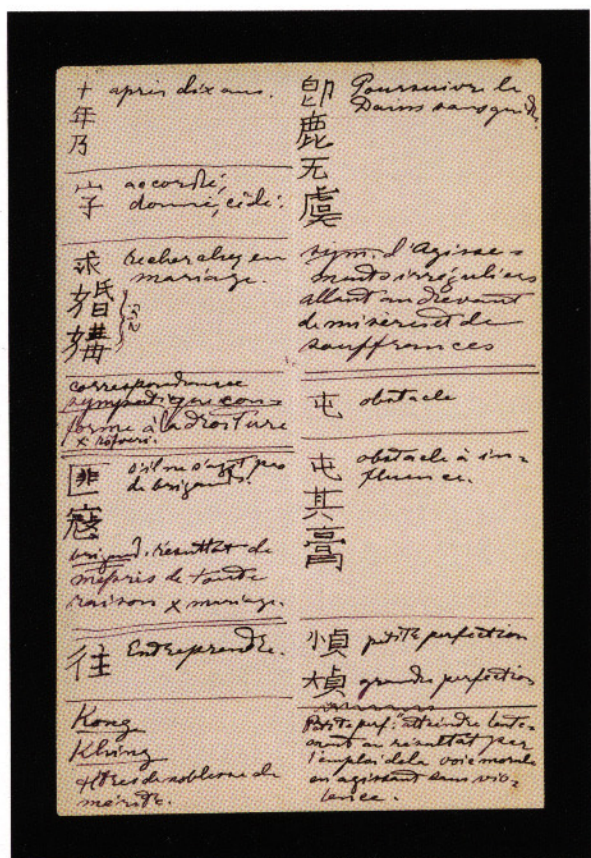 十年乃
après dix ans.
字
accordé,
donné, cédé.
求婚媾
rechercher en
mariage.
correspondance
sympathique con-
forme à la droiture
x
匪寇
s'il ne s'agit pas
de brigands.
brigand. résultat de
mépris de toute
raison x mariage.
往
Entreprendre.
Kong
Khing
titres de noblesse de
mérite.
即鹿无虞
Poursuivre le
Daim sans guide.
sym. d'Agisse=
ments irréguliers
allant au devant
de misères et de
souffrances
屯
obstacle
屯其膏
obstacle à in=
fluence.
小貞
petite perfection
大貞
grande perfection
Petite perf: atteindre lente-
ment au résultat par
l'emploi de la voie morale
en agissant sans vio-
lence.